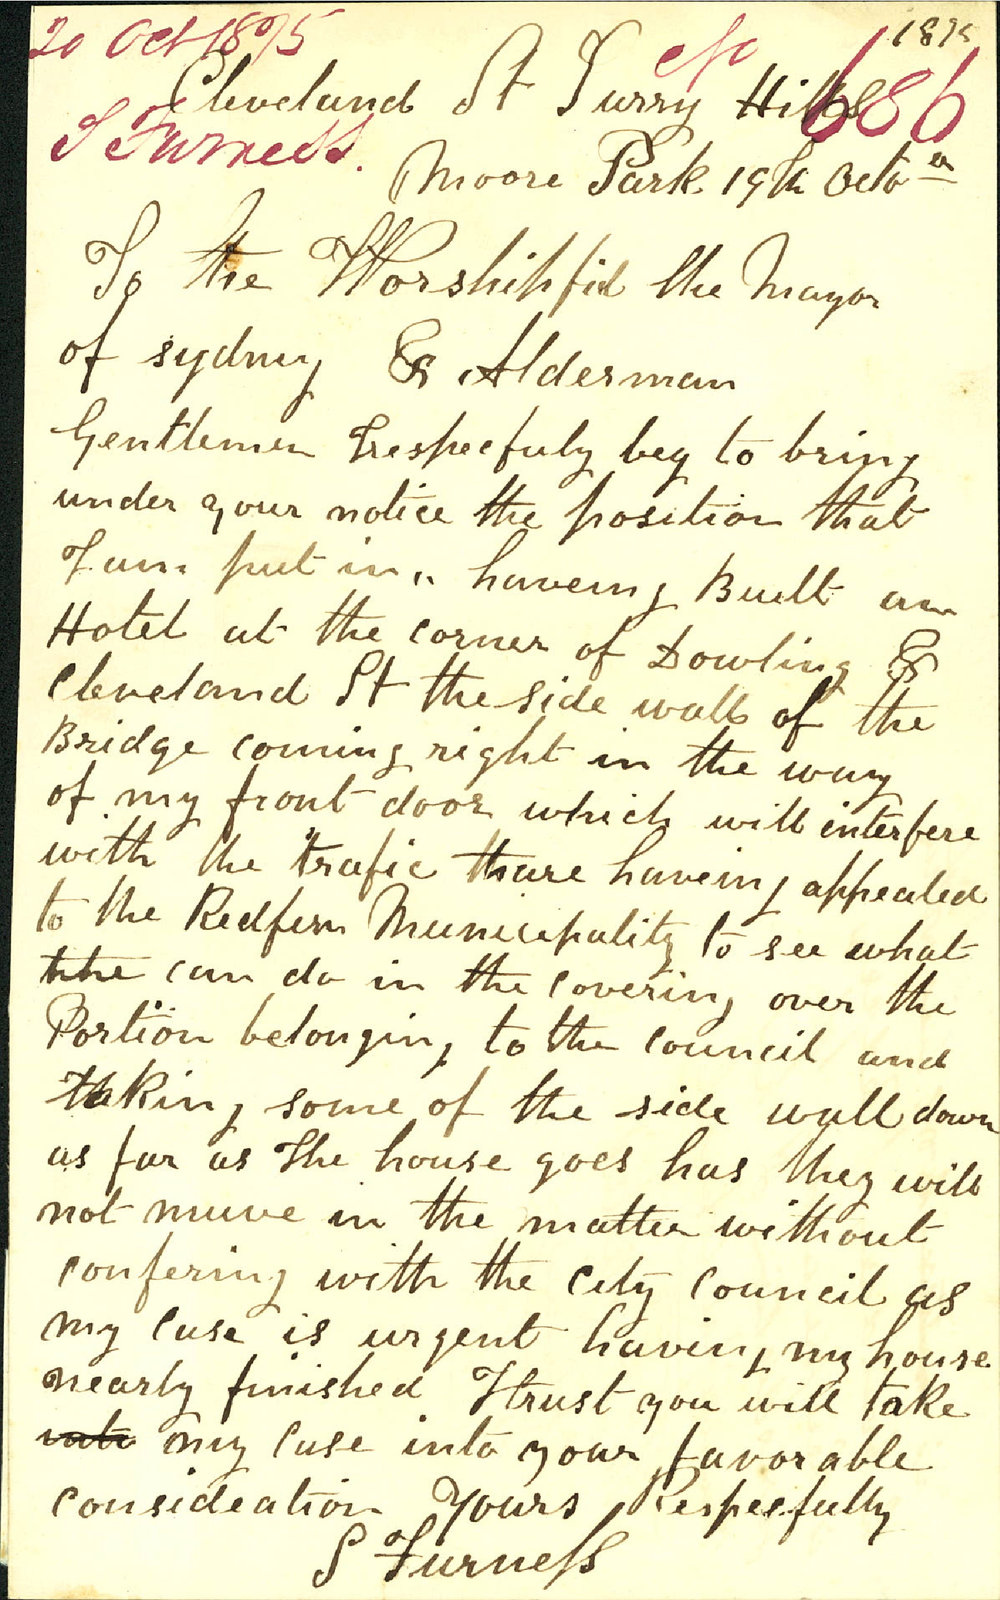 20 Oct 1875
1875
686
Cleveland St Surry Hills
S Furness.
Moore Park 19th Octo
To the Worshipful the Mayor
of sydney & Alderman
Gentlemen I respecfuly beg to bring
under your notice the position that
I am put in, haveing Built an
Hotel at the corner of Dowling &
Cleveland St the side wall of the
Bridge coming right in the way
of my front door which will interfere
with the trafic thare haveing appealed
to the Redfern Municipality to see what
the can do in the covering over the
Portion belonging to the council and
taking some of the side wall down
as far as the house goes has they will
not muve in the matter without
confering with the City Council as
my Case is urgent having my house
nearly finished I trust you will take
into my Case into your favorable
consideation Yours Respecfully
S Furness